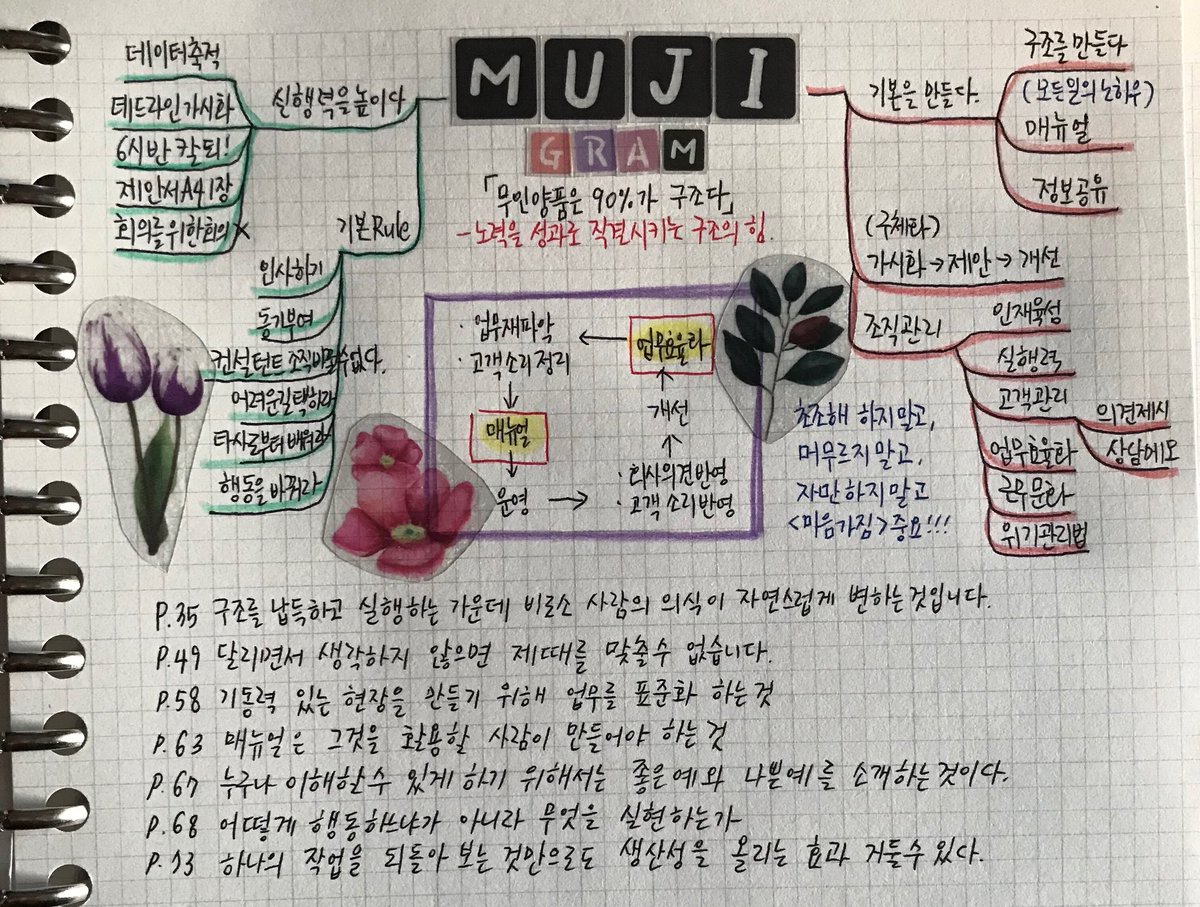 MUJI
GRAM
「무인양품은 90%가 구조다」
-노력을 성과로 직결시키는 구조의 힘.
실행력을 높이다
데이터축적
데드라인가시화
6시반 칼퇴!
제안서A41장
회의를위한회의X
기본Rule
인사하기
동기부여
컨설턴트 조직이끌수없다.
어려운길택하라
타사로부터배워라
행동을바꿔라
기본을 만들다.
구조를 만들다
(모든일의노하우)
매뉴얼
정보공유
(구체화)
가시화→제안→개선
조직관리
인재육성
실행력
고객관리
의견제시
상담메모
업무효율화
근무문화
위기관리법
·업무재파악
·고객소리정리
매뉴얼
운영
·회사의견반영
·고객소리반영
개선
업무효율화
초조해 하지말고,
머무르지말고,
자만하지말고
<마음가짐>중요!!!
P.35 구조를 납득하고 실행하는 가운데 비로소 사람의 의식이 자연스럽게 변하는것입니다.
P.49 달리면서 생각하지 않으면 제때를 맞출수 없습니다.
P.58 기동력 있는 현장을 만들기 위해 업무를 표준화 하는것
P.63 매뉴얼은 그것을 활용할 사람이 만들어야 하는것
P.67 누구나 이해할수 있게 하기 위해서는 좋은예와 나쁜예를 소개하는것이다.
P.68 어떻게 행동하느냐가 아니라 무엇을 실현하는가
P.73 하나의 작업을 되돌아 보는 것만으로도 생산성을 올리는 효과 거둘수 있다.